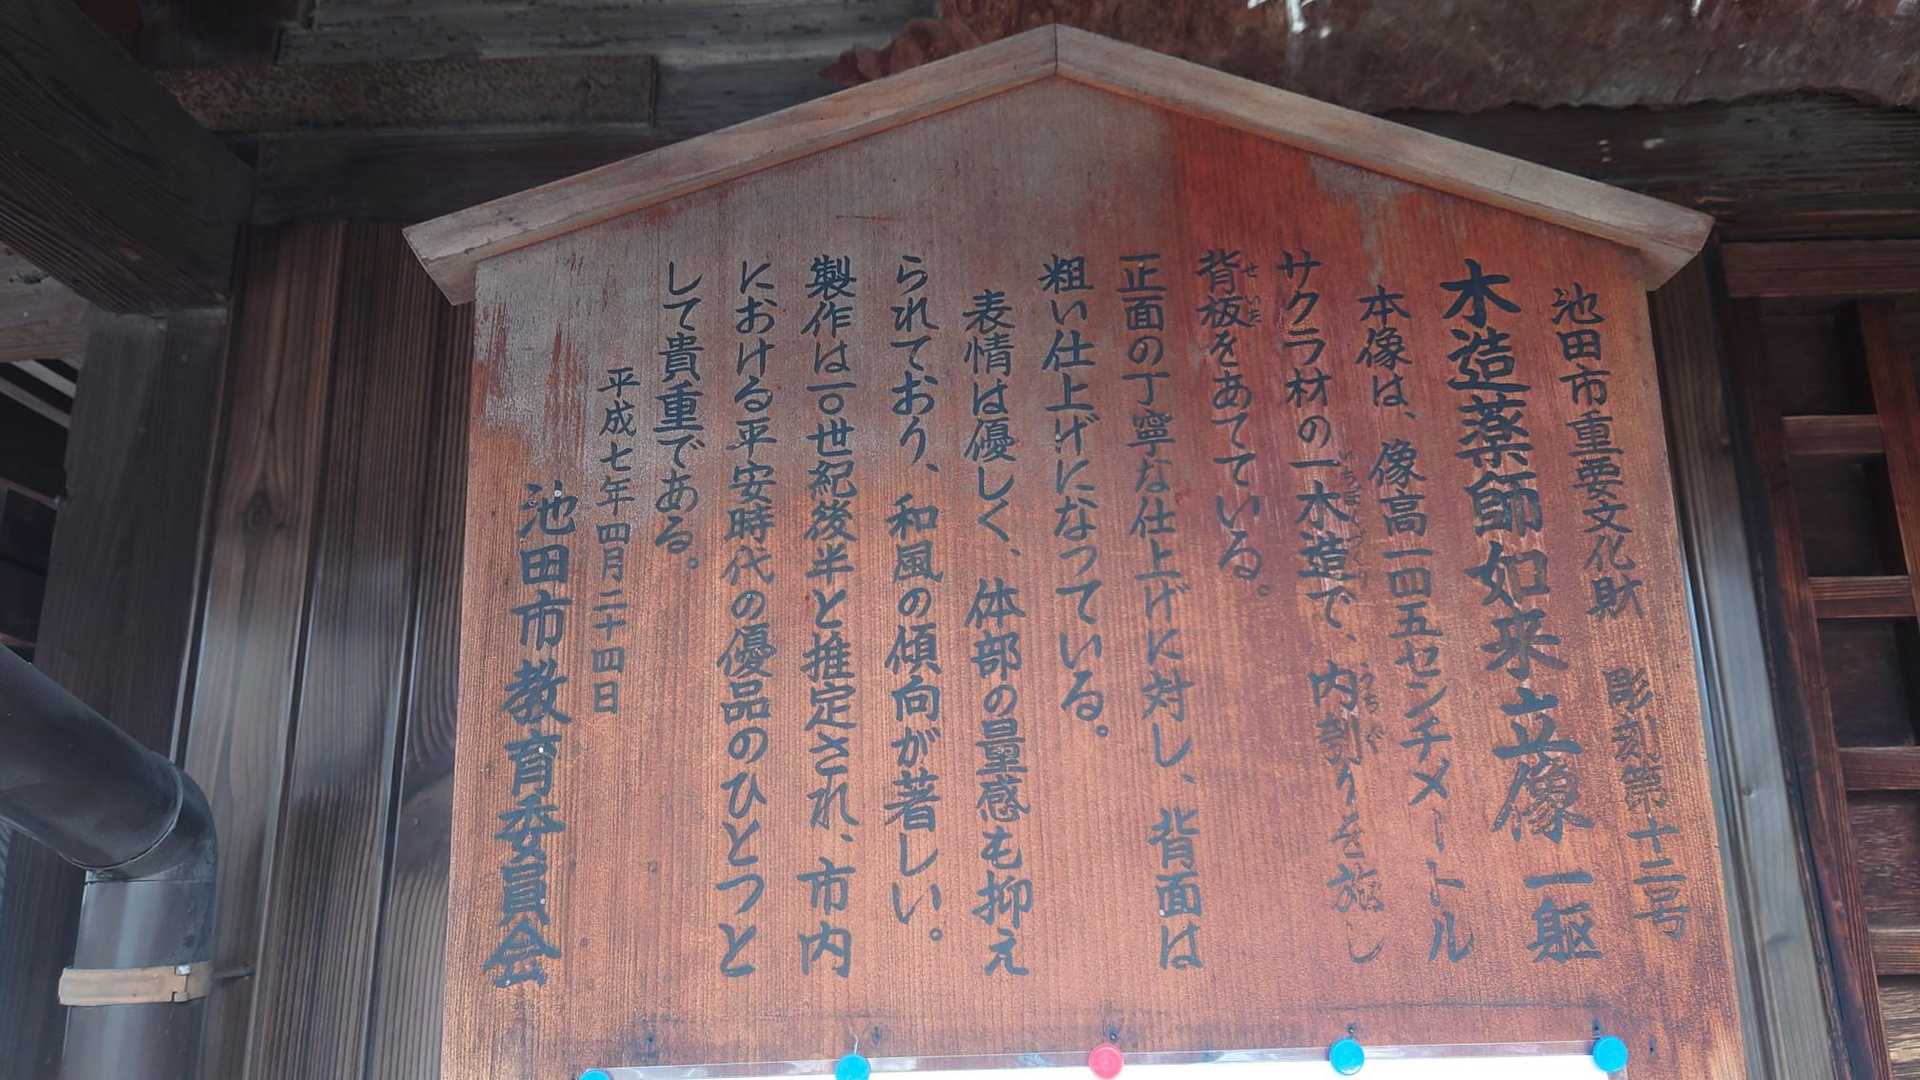 池田市重要文化財 彫刻第十二号
木造薬師如来立像 一躯
本像は、像高一四五センチメートル
サクラ材の一木造で、内刳りを施し
背板をあてている。
正面の丁寧な仕上げに対し、背面は
粗い仕上げになっている。
表情は優しく、体部の量感も抑え
られており、和風の傾向が著しい。
製作は一〇世紀後半と推定され、市内
における平安時代の優品のひとつと
して貴重である。
平成七年四月二十四日
池田市教育委員会